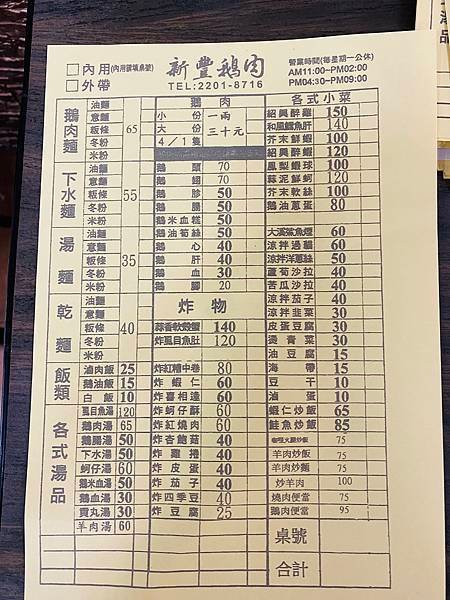 □內用(內用請填桌號)
□外帶
新豐鵝肉
TEL:2201-8716
營業時間(每星期一公休)
AM11:00~PM02:00
PM04:30~PM09:00
鵝肉麵
油麵
意麵
粄條 65
冬粉
米粉
下水麵
油麵
意麵
粄條 55
冬粉
米粉
湯麵
油麵
意麵
粄條 35
冬粉
米粉
乾麵
油麵
意麵
粄條 40
冬粉
米粉
飯類
滷肉飯 25
鵝油飯 15
白飯 10
各式湯品
虱目魚湯 120
鵝肉湯 65
鵝腸湯 50
下水湯 50
蚵仔湯 60
鵝米血湯 50
鵝血湯 30
貢丸湯 30
羊肉湯 60
鵝肉
小份 一兩
大份 三十元
4/1隻
鵝頭 70
鵝翅 70
鵝胗 50
鵝腸 50
鵝米血糕 50
鵝油筍絲 50
鵝心 40
鵝肝 40
鵝血 30
鵝腳 20
炸物
蒜香軟殼蟹 140
炸虱目魚肚 120
炸紅糟中卷 80
炸蝦仁 60
炸喜相逢 60
炸蚵仔酥 60
炸紅燒肉 60
炸杏鮑菇 40
炸雞捲 40
炸皮蛋 40
炸茄子 40
炸四季豆 40
炸豆腐 25
各式小菜
紹興醉雞 150
和風鱈魚肝 140
芥末鮮蝦 100
紹興醉蝦 120
鳳梨蝦球 100
蒜泥鮮蚵 120
芥末軟絲 100
鵝油蔥蛋 80
大溪鯊魚煙 60
涼拌過貓 60
涼拌洋蔥絲 50
蘆筍沙拉 40
苦瓜沙拉 40
涼拌茄子 40
涼拌韭菜 30
皮蛋豆腐 30
燙青菜 30
油豆腐 15
海帶 15
豆干 10
滷蛋 10
蝦仁炒飯 65
鮭魚炒飯 85
咖哩火腿炒飯 75
羊肉炒飯 75
羊肉炒麵 75
炒羊肉 100
燒肉便當 75
鵝肉便當 95
桌號
合計
湯品